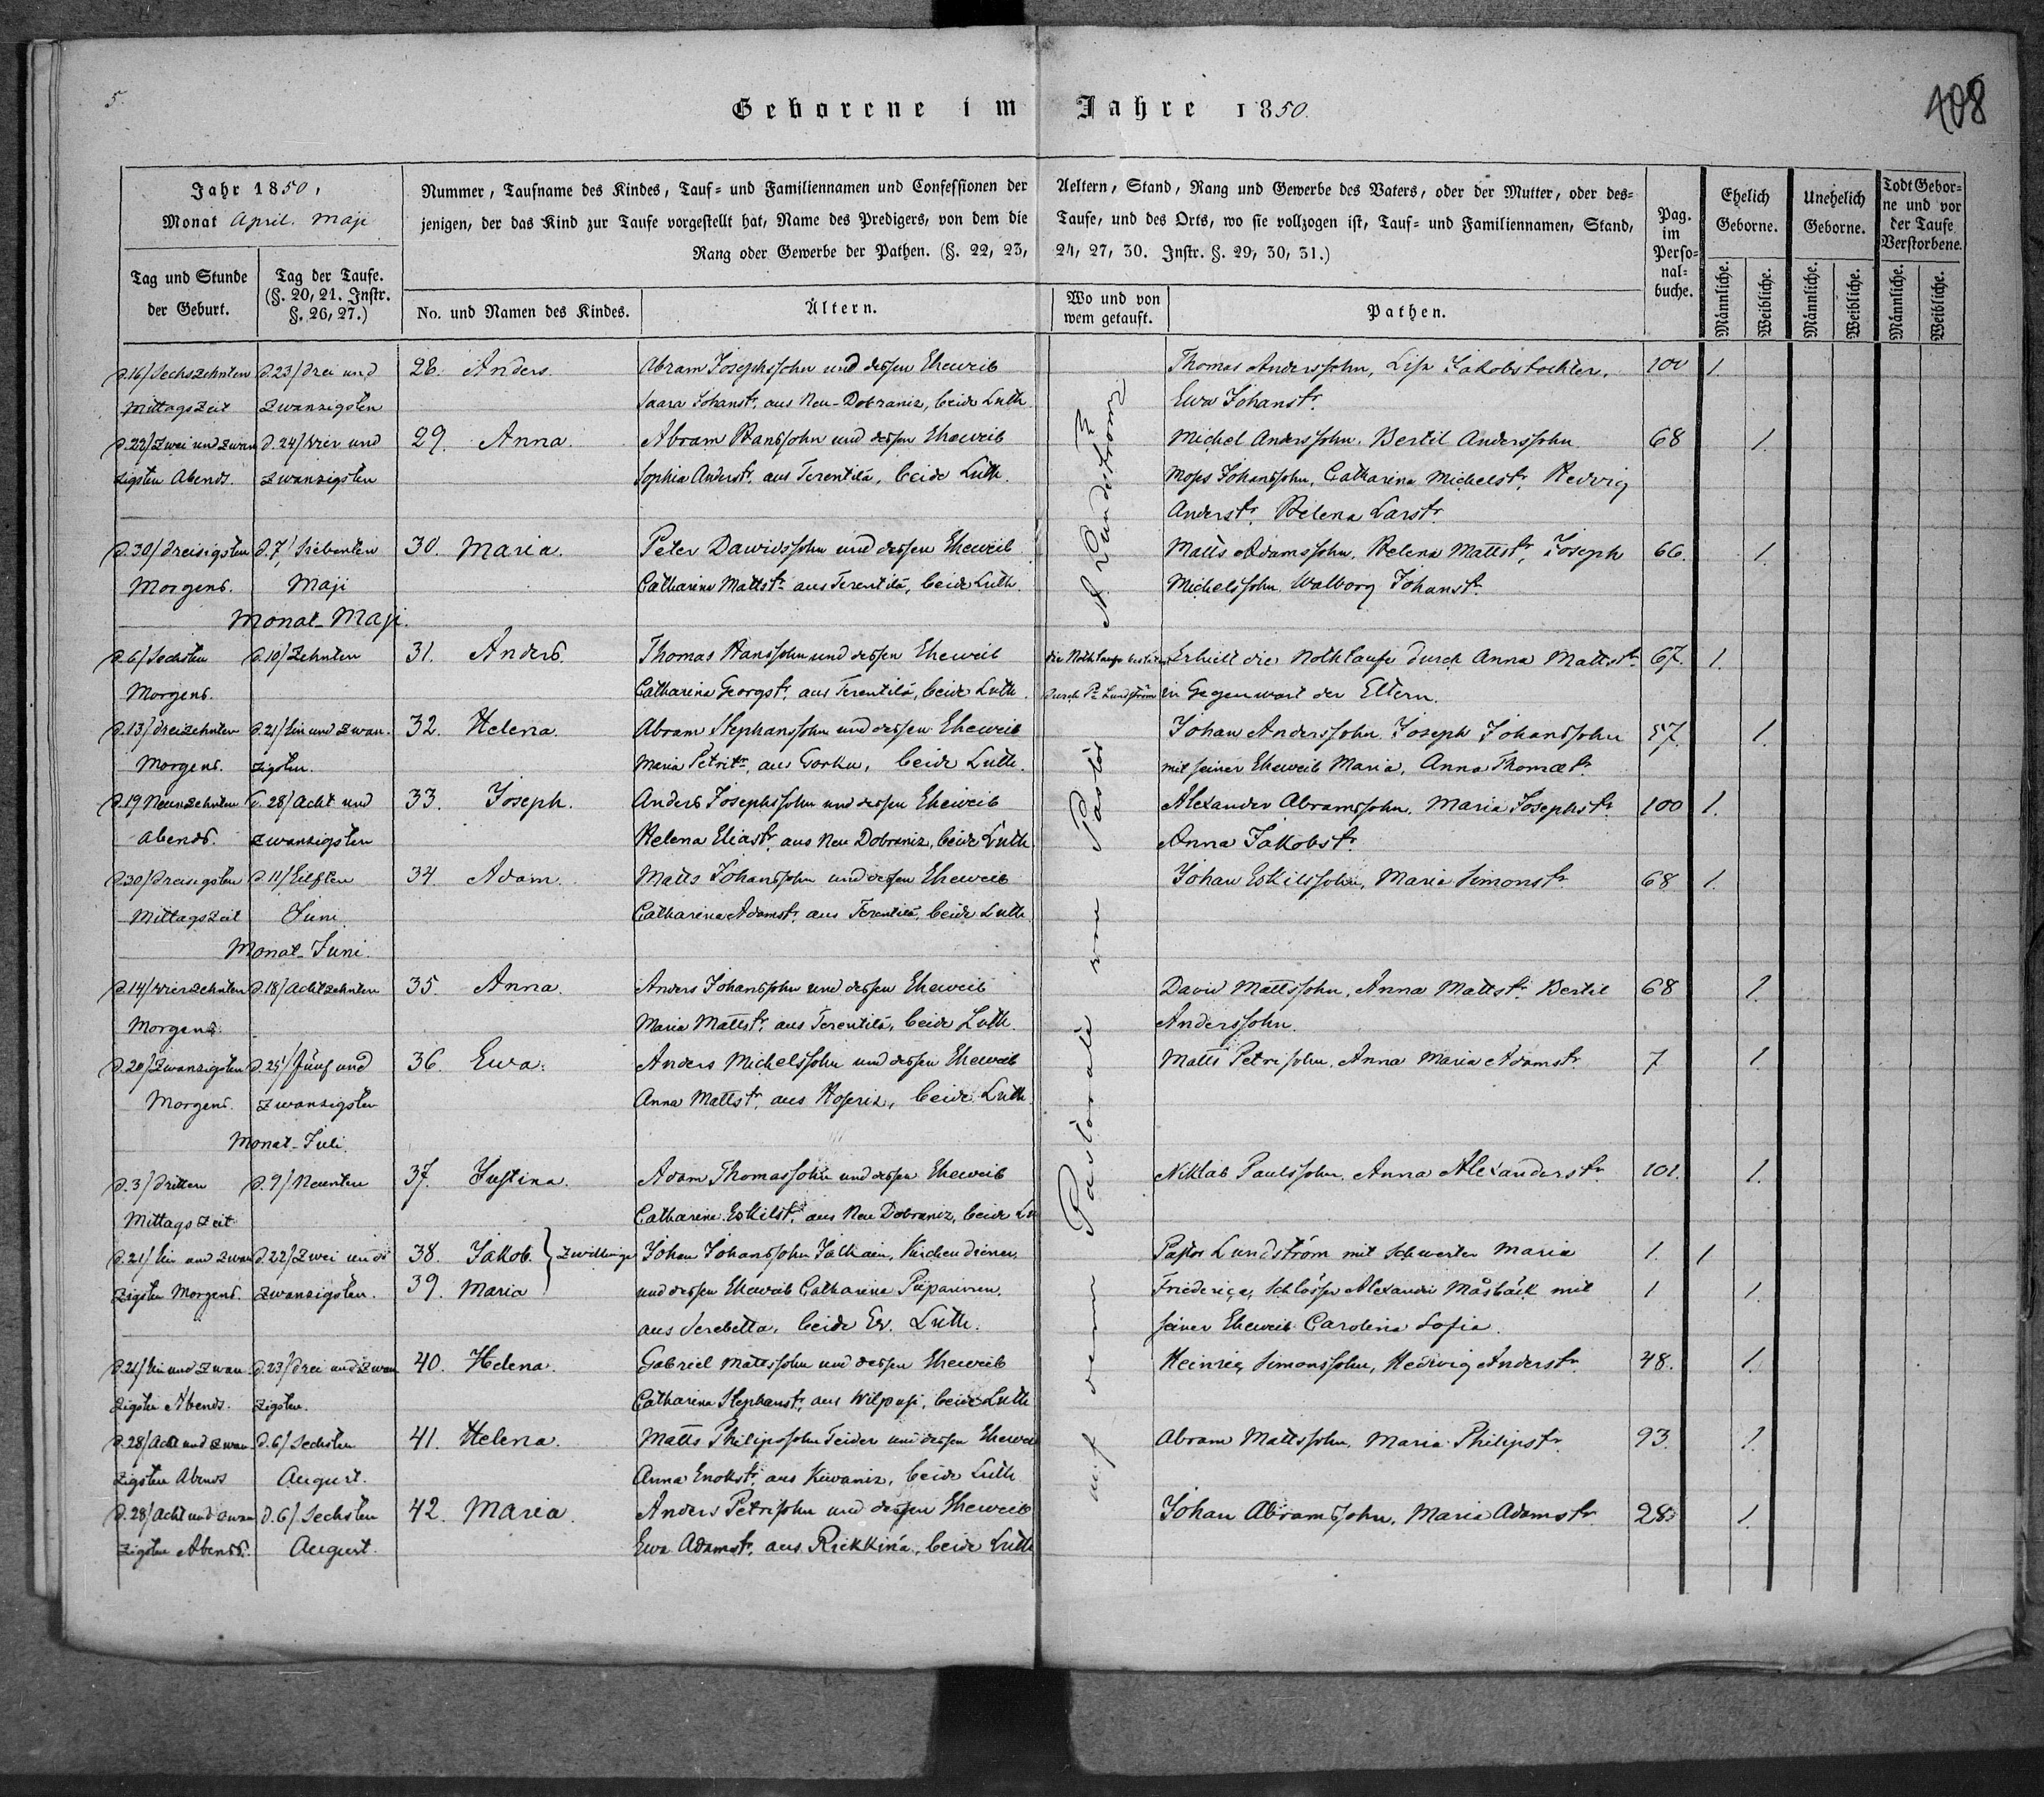 5.
Geborene im Jahre 1850.
408
Jahr 1850,
Monat April. Maji
Tag und Stunde der Geburt.
Tag der Taufe. (§. 20, 21. Instr. §. 26, 27.)
Nummer, Taufname des Kindes, Tauf- und Familiennamen und Confessionen der Aeltern, Stand, Rang und Gewerbe des Vaters, oder der Mutter, oder des-
jenigen, der das Kind zur Taufe vorgestellt hat, Name des Predigers, von dem die Taufe, und des Orts, wo sie vollzogen ist, Tauf- und Familiennamen, Stand,
Rang oder Gewerbe der Pathen. (§. 22, 23, 24, 27, 30. Instr. §. 29, 30, 31.)
No. und Namen des Kindes.
Ältern.
Wo und von wem getauft.
Pathen.
Pag. im Perso-nal-buche.
Ehelich Geborne.
Unehelich Geborne.
Todt Gebor-ne und vor der Taufe Verstorbene.
Männliche. Weibliche. Männliche. Weibliche. Männliche. Weibliche.
d. 16/ Sechszehnten d. 23/ drei und 28. Anders. Abram Josephssohn und dessen Eheweib Thomas Anderssohn, Lisa Jakobstochter, 100 1.
Mittagszeit zwanzigsten Saara Johanstr. aus Neu-Dobraniz, beide Luth. Ewa Johanstr.
d. 22/ Zwei und zwan d. 24/ vier und 29. Anna. Abram Hanssohn und dessen Eheweib Michel Anderssohn, Bertil Anderssohn 68 1.
zigsten Abends. zwanzigsten Sophia Anderstr. aus Terentilä, beide Luth. Moses Johanssohn, Catharina Michelstr. Hedvig
Anderstr. Helena Larstr.
d. 30/ dreisigsten d. 7/ Siebenten 30. Maria. Peter Dawidssohn und dessen Eheweib Matts Adamssohn, Helena Mattstr. Joseph 66. 1.
Morgens. Maji Catharina Mattstr. aus Terentilä, beide Luth. Michelssohn Walborg Johanstr.
Monat Maji.
d. 6/ Sechsten d. 10/ Zehnten 31. Anders. Thomas Hanssohn und dessen Eheweib die Nothtaufe Erhielt die Nothtaufe durch Anna Mattstr. 67. 1.
Morgens. Catharina Georgstr. aus Terentilä, beide Luth. durch Pr. Lundström in Gegenwart der Eltern.
d. 13/ dreizehnten d. 21/ Ein und zwan- 32. Helena. Abram Stephanssohn und dessen Eheweib Johan Anderssohn. Joseph Johanssohn 57. 1.
Morgens. zigsten. Maria Petritr. aus Gorku, beide Luth. mit seiner Eheweib Maria, Anna Thomætr.
d. 19 Neunzehnten d. 28/ Acht und 33. Joseph. Anders Josephssohn und dessen Eheweib Alexander Abramssohn, Maria Josephstr. 100 1.
Abends. zwanzigsten Helena Eliastr. aus Neu Dobraniz, beide Luth. Anna Jakobstr.
d. 30/ dreisigsten d. 11/ Eilften 34. Adam. Matts Johanssohn und dessen Eheweib Johan Eskilssohn, Maria Simonstr. 68 1.
Mittagszeit Juni Catharina Adamstr. aus Terentilä, beide Luth.
Monat Juni.
d. 14/ vierzehnten d. 18/ Achtzehnten 35. Anna. Anders Johanssohn und dessen Eheweib David Mattssohn, Anna Mattstr. Bertil 68 1.
Morgens. Maria Mattstr. aus Terentilä, beide Luth. Anderssohn.
d. 20/ Zwanzigsten d. 25/ fünf und 36. Ewa. Anders Michelssohn und dessen Eheweib Matts Petrisohn, Anna Maria Adamstr. 7 1.
Morgens. zwanzigsten Anna Mattstr. aus beide Luth.
Monat Juli.
d. 3/ Dritten d. 9/ Neunten 37. Justina. Adam Thomassohn und dessen Eheweib Niklas Paulssohn, Anna Alexanderstr. 101. 1.
Mittagszeit Catharina Eskilstr. aus Neu Dobraniz, beide Lu
d. 21/ Ein und zwan d. 22/ Zwei und 38. Jakob. Zwillinge Johan Johanssohn Kirchendiener Pastor Lundström mit Schwester Maria 1. 1
zigsten Morgens. zwanzigsten. 39. Maria und dessen Eheweib Catharina Friederica, Schlosser Alexander Måsbäck mit 1 1.
aus beide Ev. Luth. seiner Eheweib Carolina Sofia.
d. 21/ Ein und zwan d. 23/ drei und zwan 40. Helena. Gabriel Mattssohn und dessen Eheweib Heinric Simonssohn, Hedwig Anderstr. 48. 1.
zigsten Abends. zigsten. Catharina Stephanstr. aus Wilpusi, beide Luth
d. 28/ Acht und zwan d. 6/ Sechsten 41. Helena. Matts Philipssohn Teider und dessen Ehewei Abram Mattssohn, Maria Philipstr. 93. 1.
zigsten Abends August. Anna Enokstr. aus Kiwaniz, beide Luth
d. 28/ Acht und zwan d. 6/ Sechsten 42. Maria. Anders Petrisohn und dessen Eheweib Johan Abramssohn, Maria Adamstr. 28 1.
zigsten Abends. August. Ewa Adamstr. aus beide Luth
auf denen Pastorate von Pastor A. Lundström